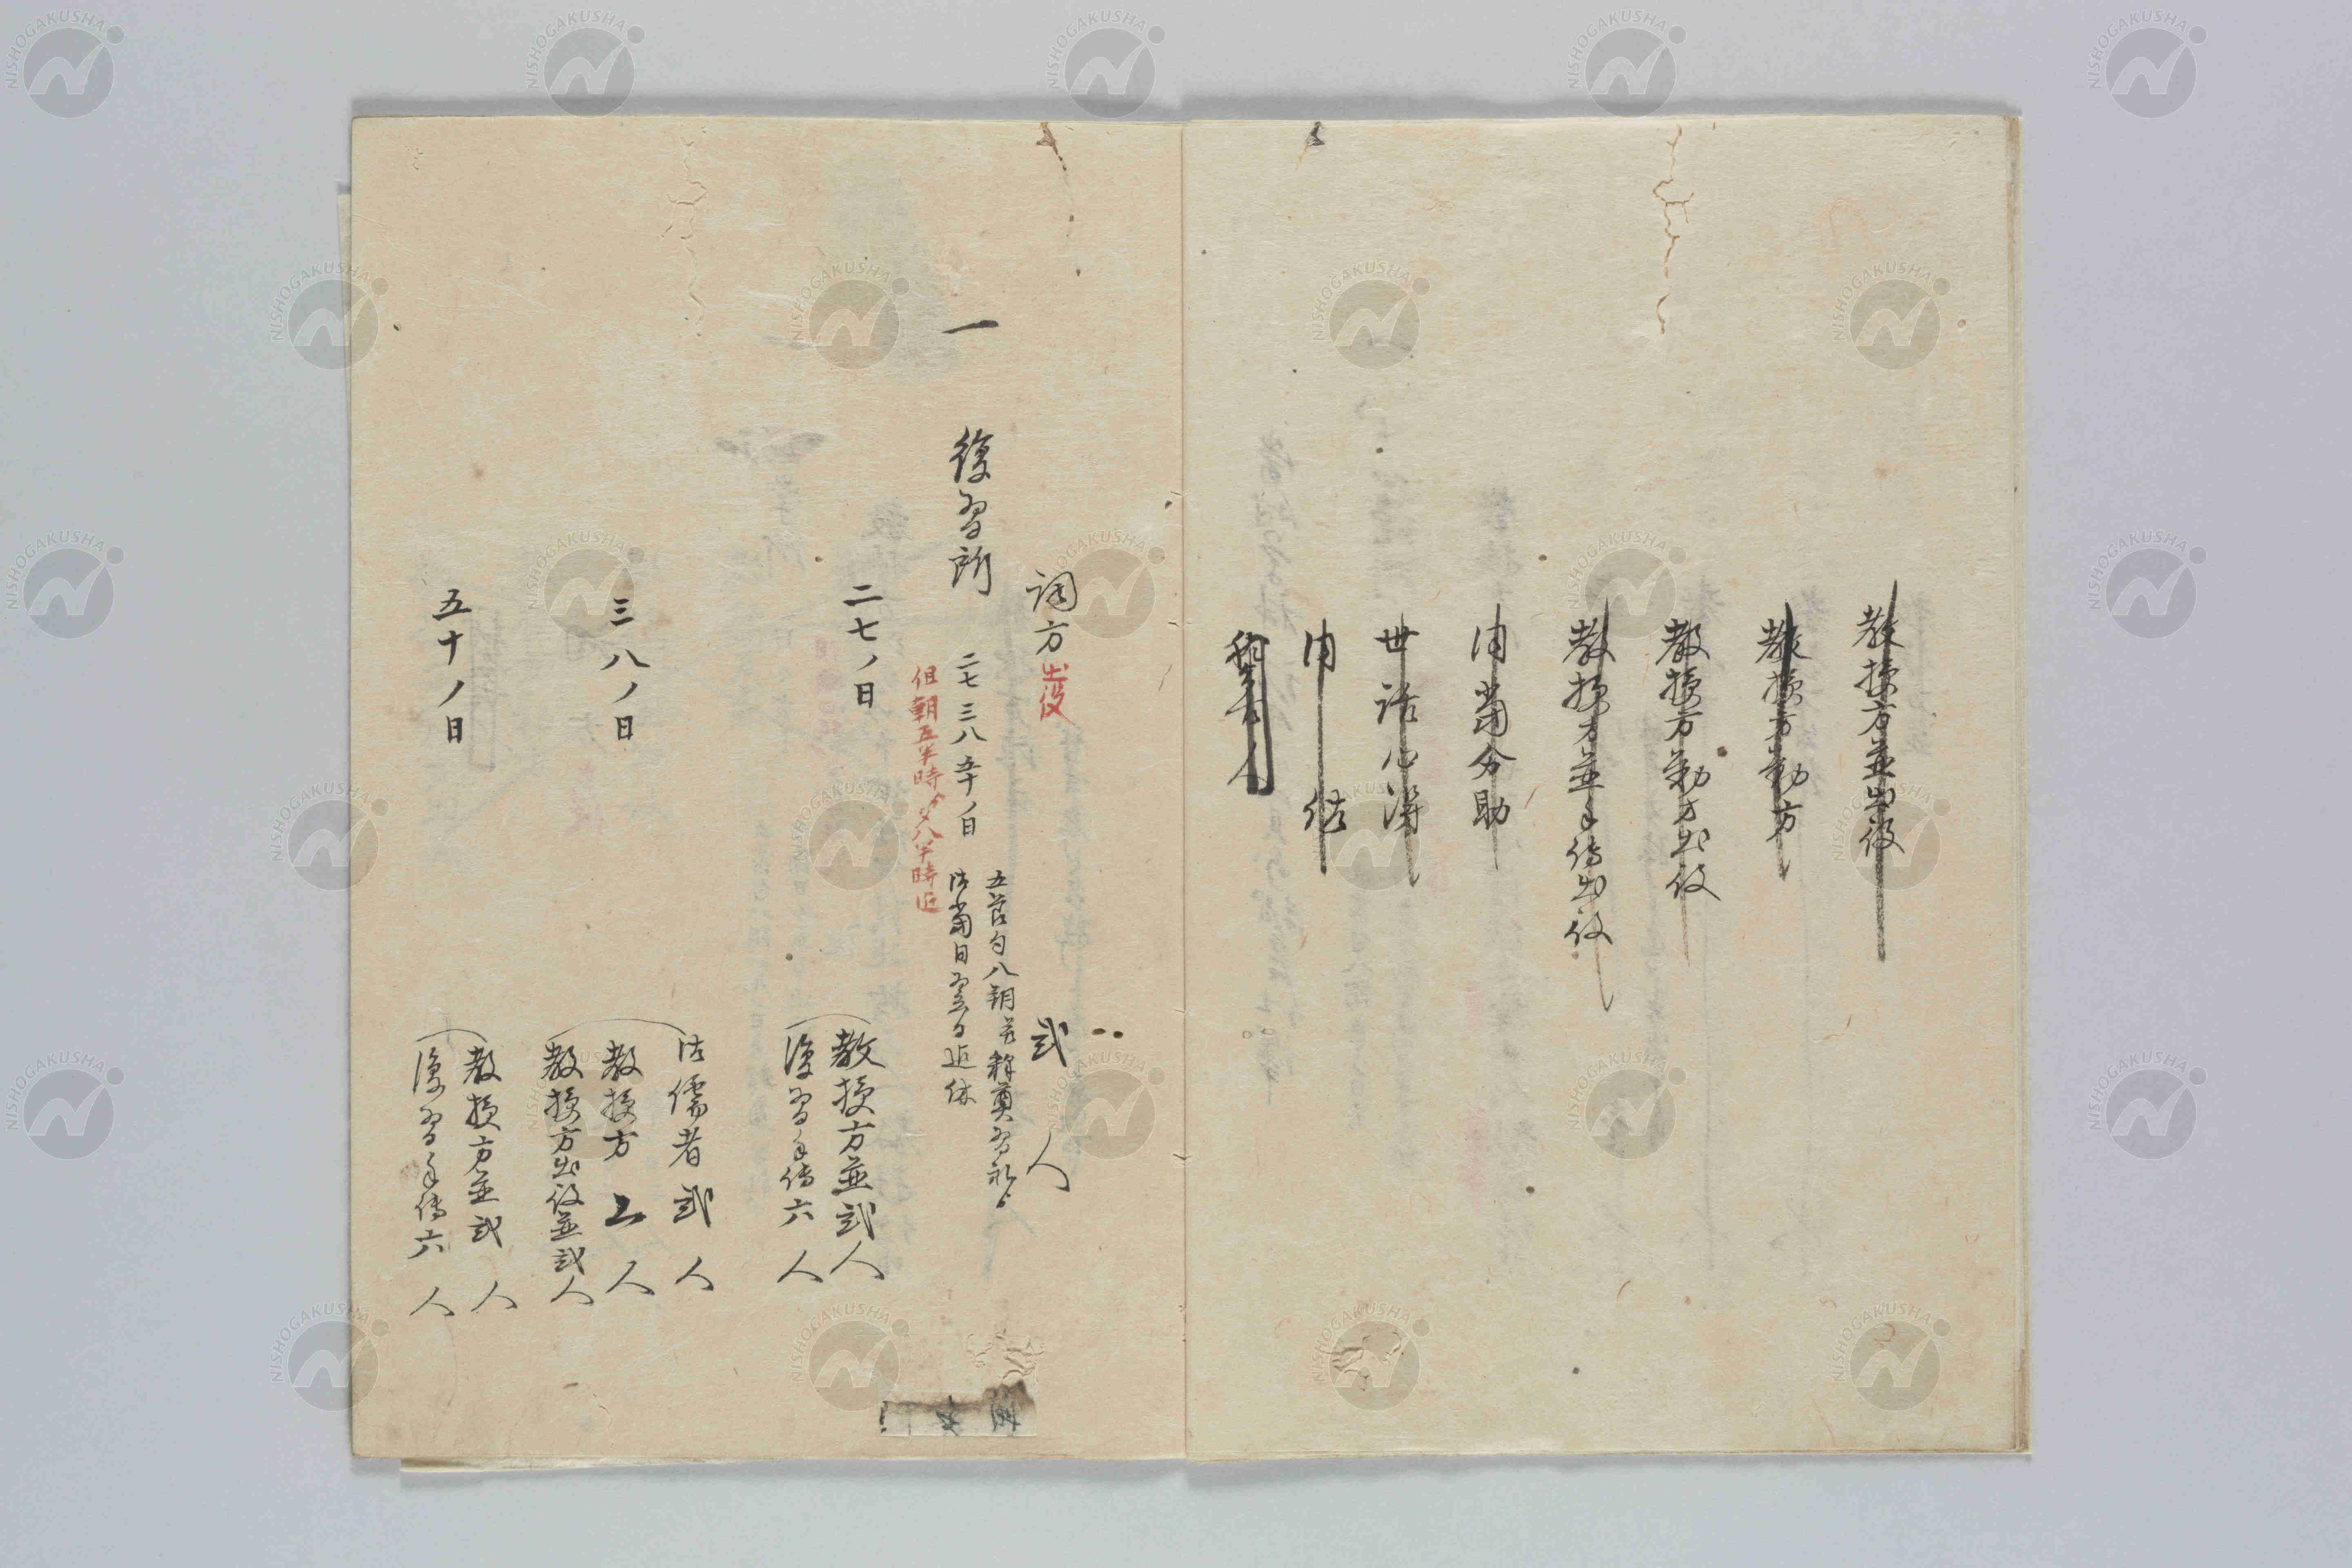 教授方並出役
教授方勤方
教授方勤方出役
教授方並手伝出役
当分助
世話心得
調方出役 弐人
一 復習所 二七三八五十ノ日
五節句八朔釈奠習礼
当日翌日迄休
但朝五半時夕八半時迄
二七ノ日
教授方並弐人
復習手伝六人
三八ノ日
儒者弐人
教授方二人
教授方出役並弐人
五十ノ日
教授方並弐人
復習手伝六人
NISHOGAKUSHA